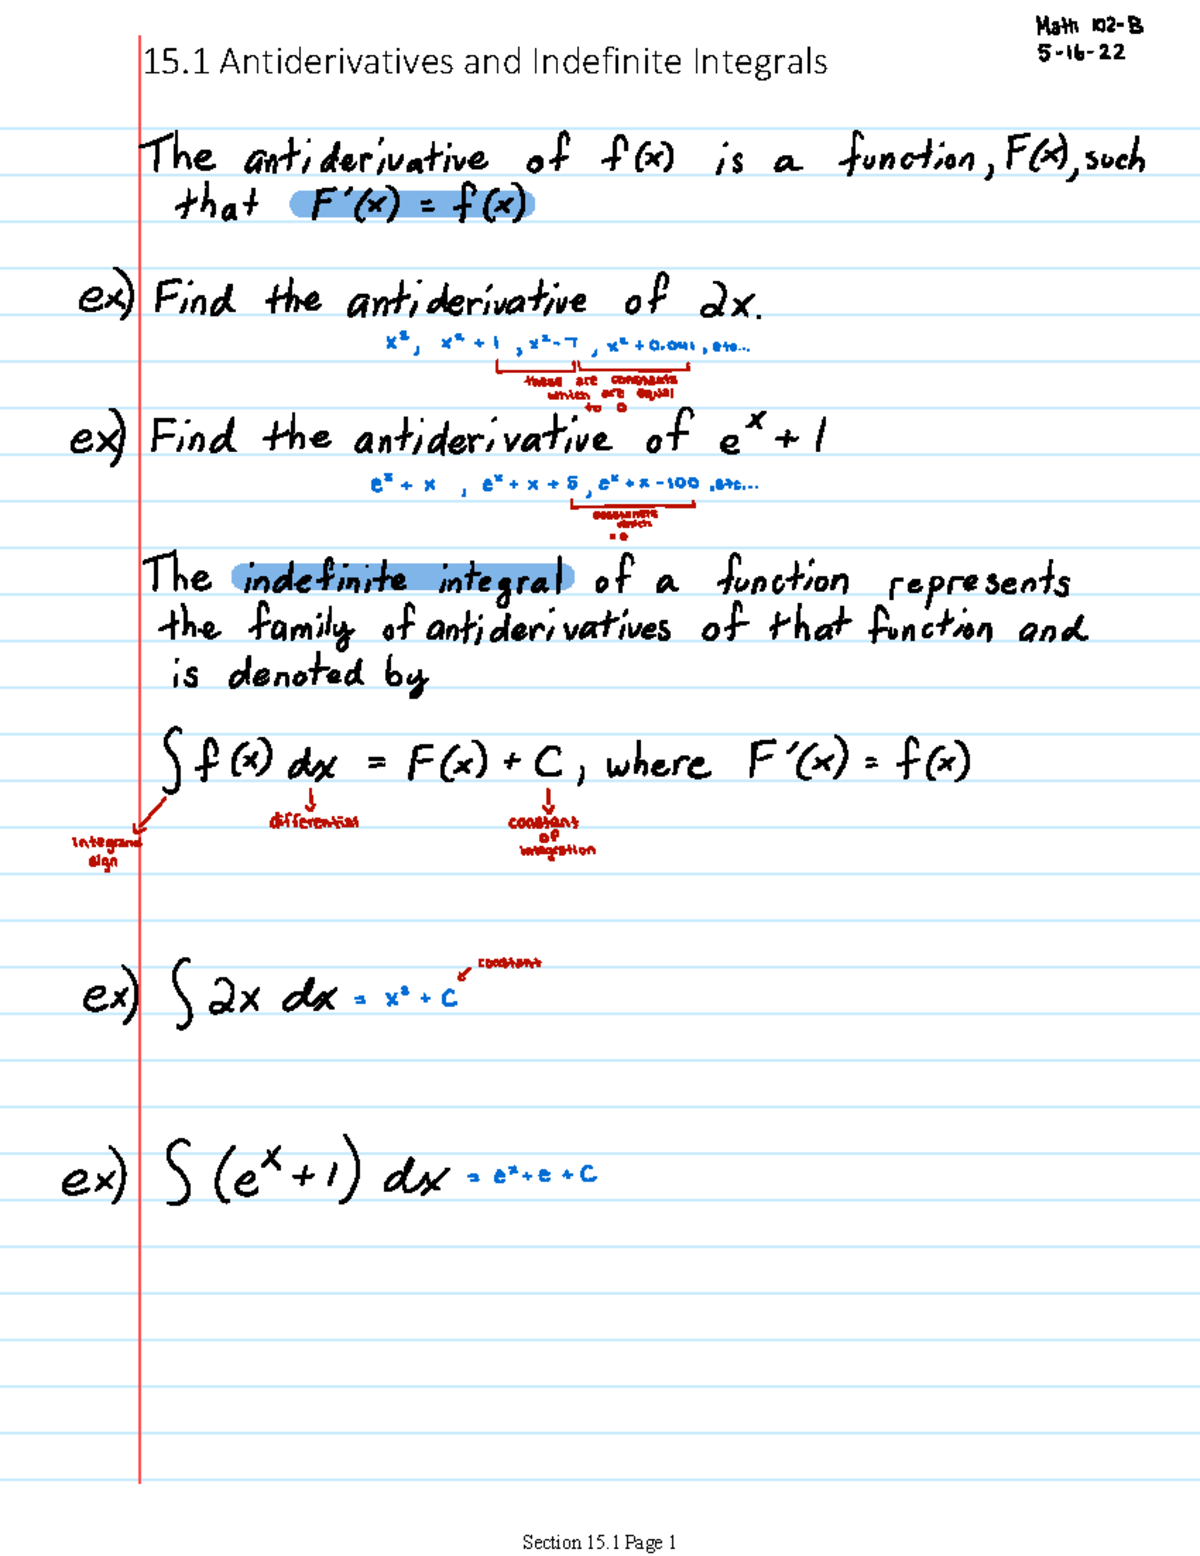 Math 102-B
5-16-22
15.1 Antiderivatives and Indefinite Integrals
The antiderivative of f(x) is a function, F(x), such
that F'(x) = f(x)
ex) Find the antiderivative of 2x.
x², x² + 1, x² - 7, x² + 0.041, etc...
these are constants
which are equal
to 0
ex) Find the antiderivative of eˣ + 1
eˣ + x, eˣ + x + 5, eˣ + x - 100, etc...
constants
which
= 0
The indefinite integral of a function represents
the family of antiderivatives of that function and
is denoted by
∫ f(x) dx = F(x) + C, where F'(x) = f(x)
integrand
sign
differential
constant
of
integration
constant
ex) ∫ 2x dx = x² + C
ex) ∫ (eˣ + 1) dx = eˣ + e + C
Section 15.1 Page 1